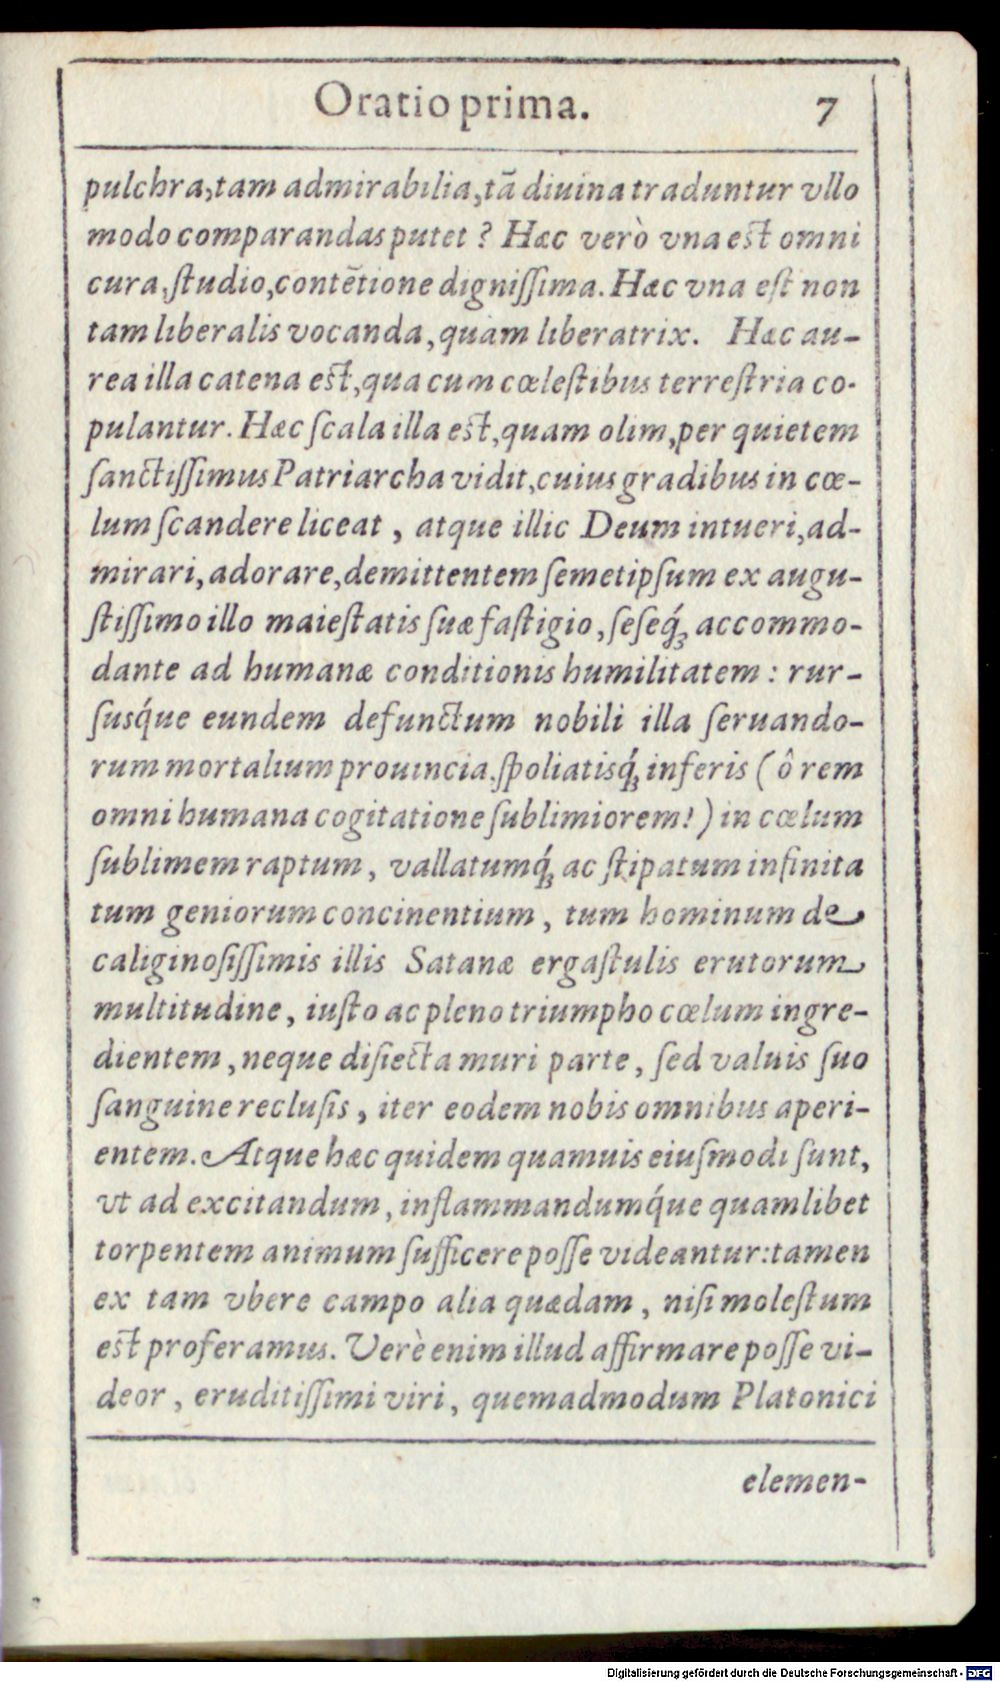 Oratio prima. 7
pulchra,tam admirabilia,tā diuina traduntur vllo
modo comparandas putet ? Hæc verò vna est omni
cura,ſtudio,contētione digniſſima. Hæc vna eſt non
tam liberalis vocanda, quàm liberatrix. Hæc au-
rea illa catena est, qua cum cœleſtibus terreſtria co-
pulantur. Hæc ſcala illa est, quam olim, per quietem
ſanctiſſimus Patriarcha vidit, cuius gradibus in cœ-
lum ſcandere liceat , atque illic Deum intueri, ad-
mirari, adorare, demittentem ſemetipſum ex augu-
ſtiſſimo illo maieſtatis ſuæ faſtigio, ſeſeq́ꝫ accommo-
dante ad humanæ conditionis humilitatem : rur-
ſusq́ue eundem defunctum nobili illa ſeruando-
rum mortalium prouincia, ſpoliatisq́ꝫ inferis (ô rem
omni humana cogitatione ſublimiorem! ) in cœlum
ſublimem raptum, vallatumq́ꝫ ac ſtipatum infinita
tum geniorum concinentium, tum hominum de
caliginoſiſſimis illis Satanæ ergaſtulis erutorum
multitudine, iuſto ac pleno triumpho cœlum ingre-
dientem, neque diſiecta muri parte, ſed valuis ſuo
ſanguine recluſis, iter eodem nobis omnibus aperi-
entem. Atque hæc quidem quamuis eiuſmodi ſunt,
vt ad excitandum, inflammandumq́ue quamlibet
torpentem animum ſufficere poſſe videantur: tamen
ex tam vbere campo alia quædam, niſi moleſtum
est proferamus. Verè enim illud affirmare poſſe vi-
deor, eruditiſſimi viri, quemadmodum Platonici
elemen-
Digitalisierung gefördert durch die Deutsche Forschungsgemeinschaft - DFG